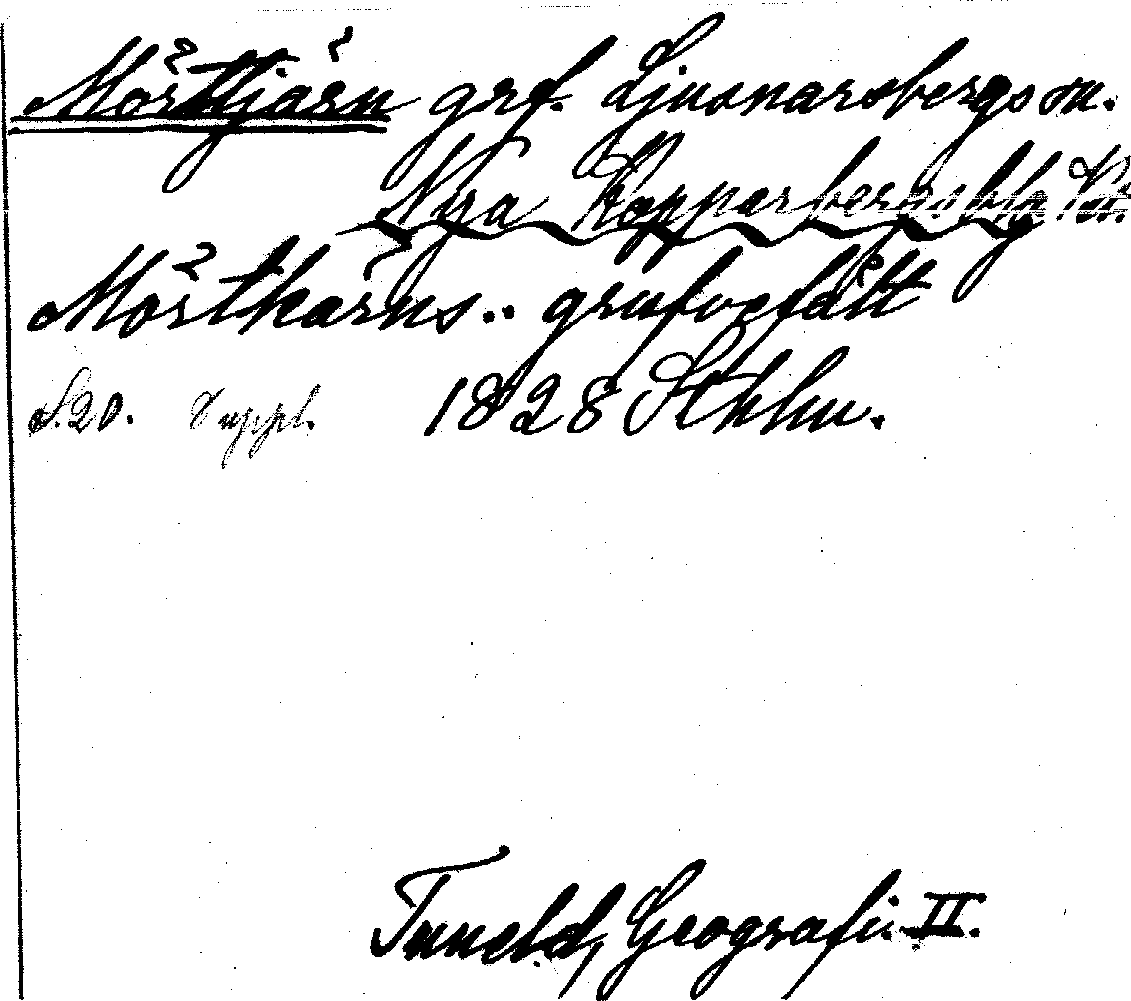 Mörttjärn grf. Ljusnarsbergs sn.
Nya Kopparbergs blg
Mörtkärns .. grufvefält
S. 20. Suppl. 1828 Sthlm.
Tuneld, Geografi II.